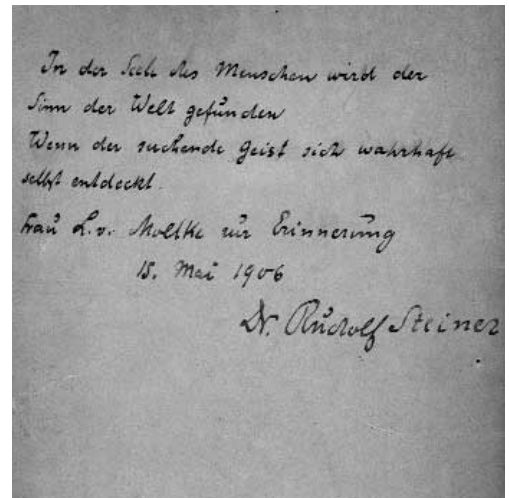 In der Seele des Menschen wird der
Sinn der Welt gefunden
Wenn der suchende Geist sich wahrhaft
selbst entdeckt.
Frau L. v. Moltke zur Erinnerung
15. Mai 1906
Dr. Rudolf Steiner